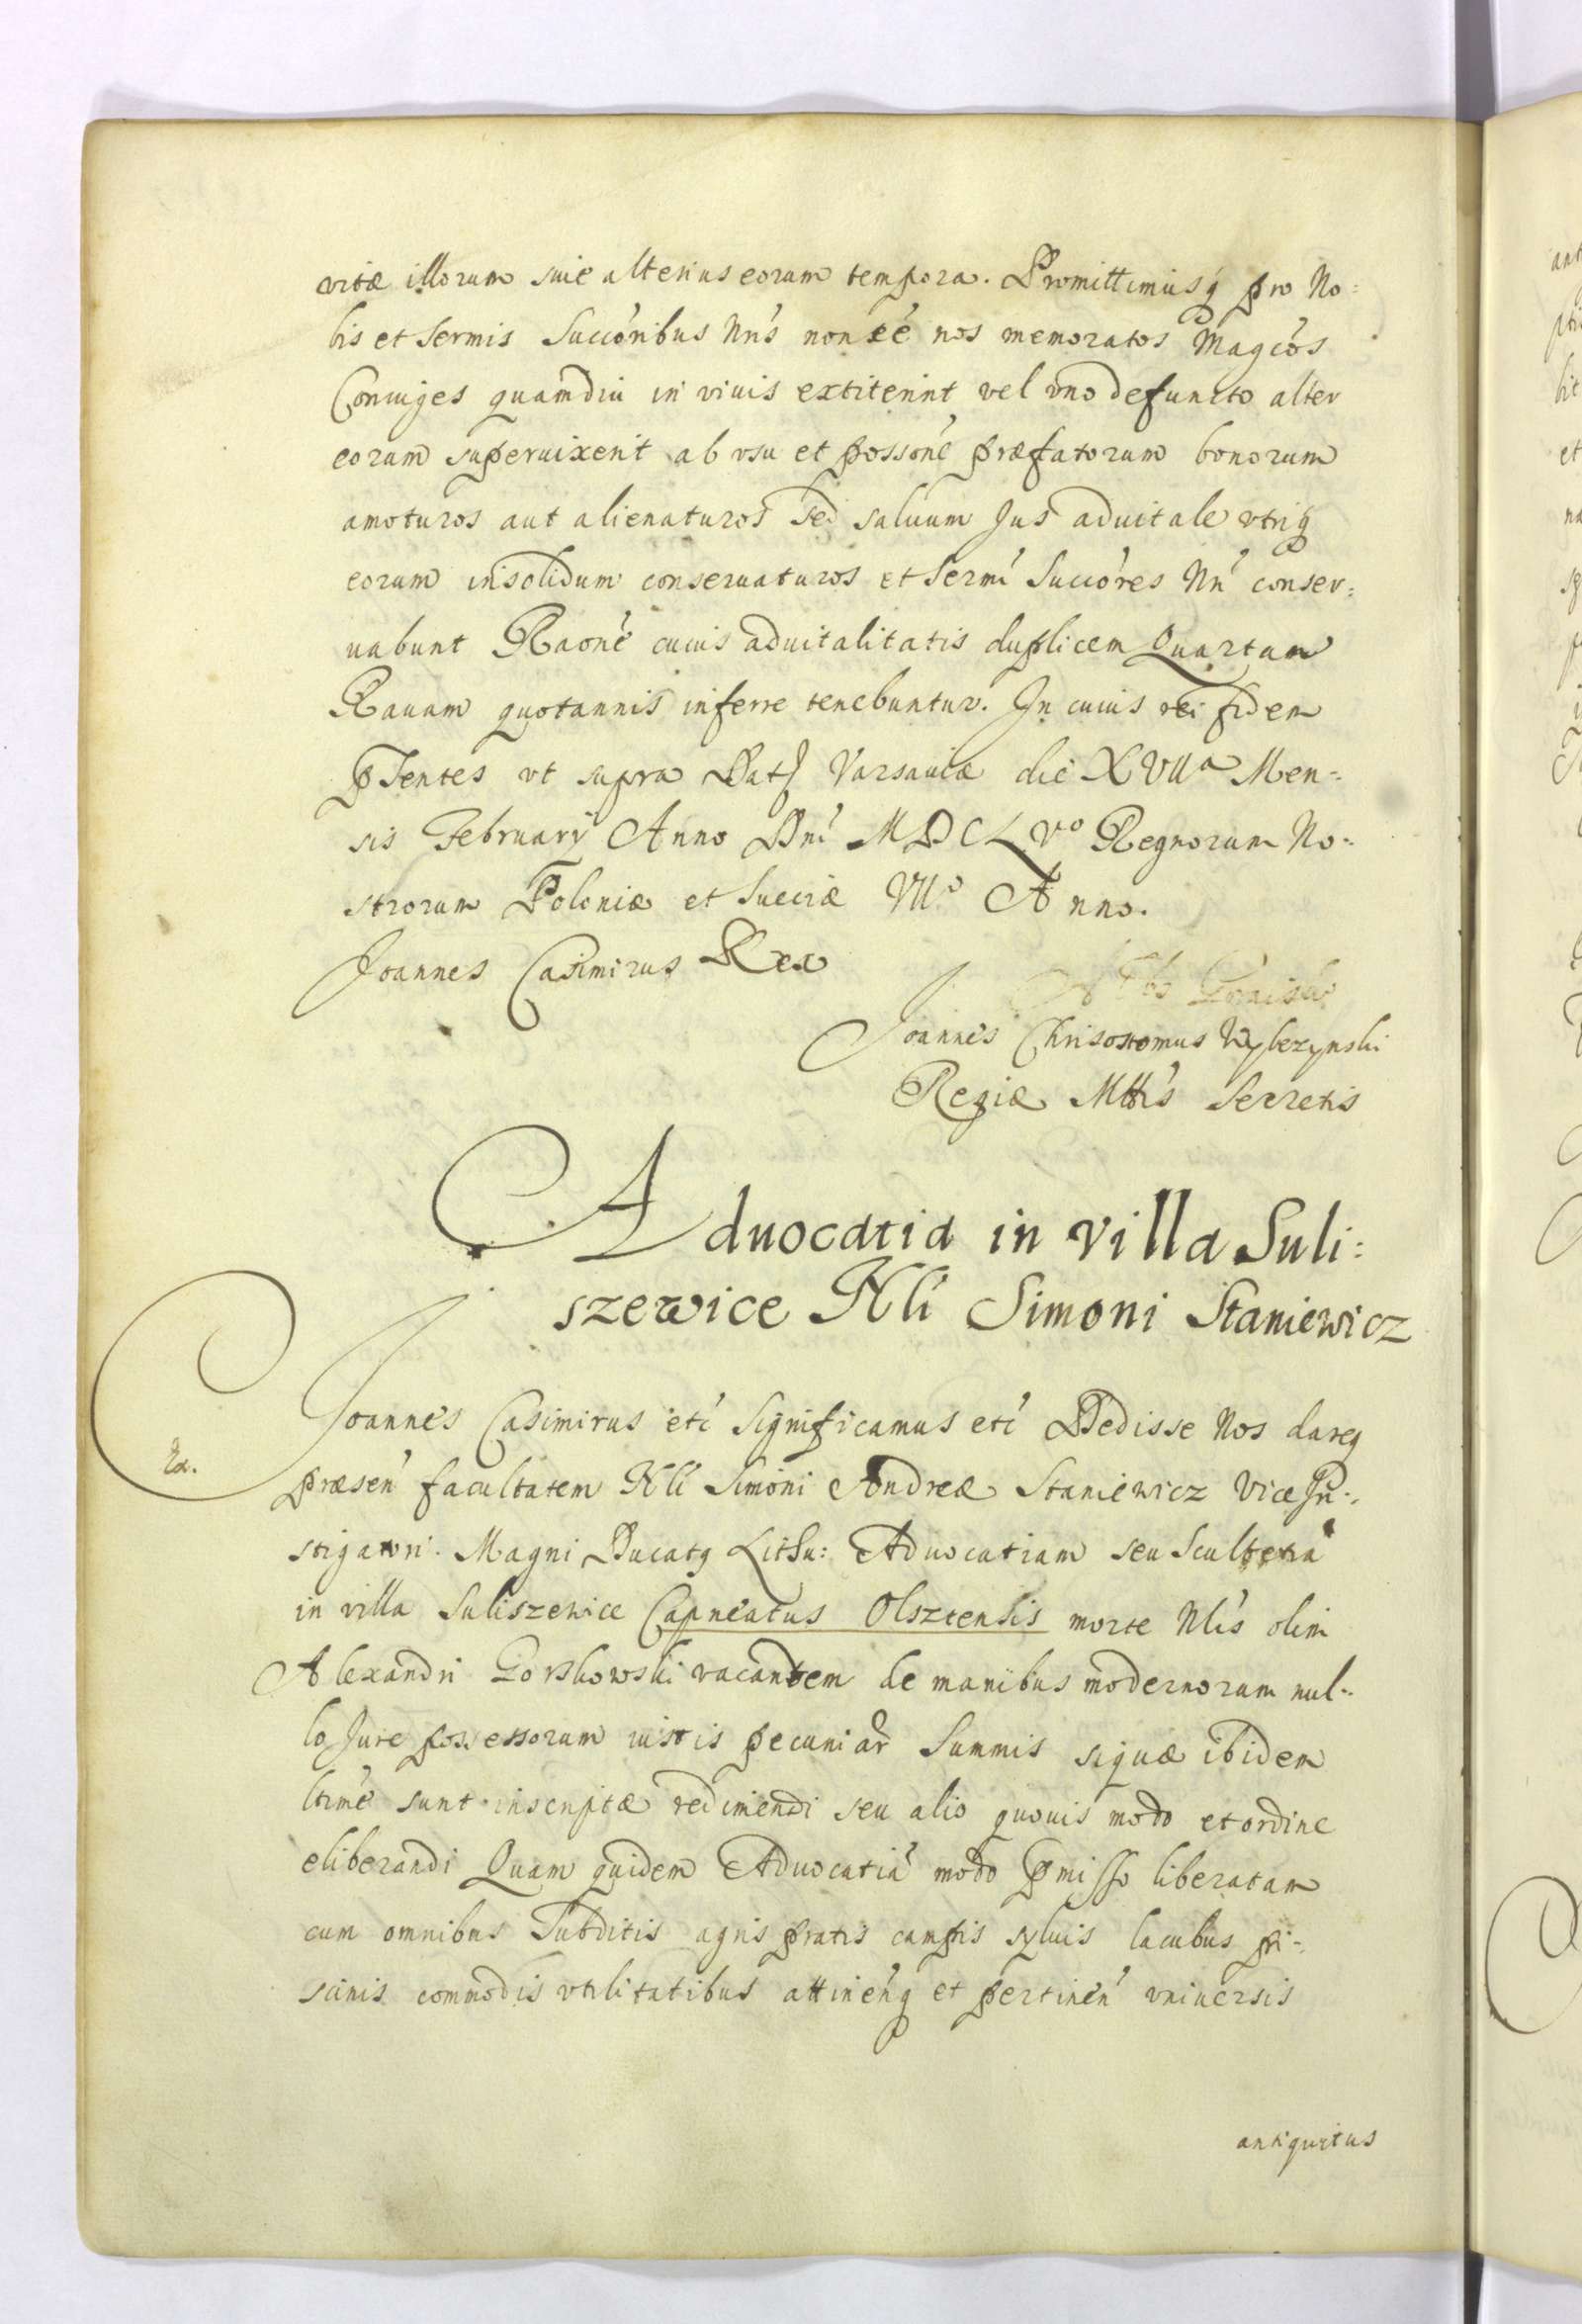 vitæ illorum sive alterius eorum tempora. Promittimusq̃ pro No:
bis et Sermis Succõribus Nrĩs non eẽ nos memoratos Magcõs
Coniuges quamdiu in vivis extiterint vel vno defuncto alter
eorum superuixerit ab vsu et possonẽ præfatorum bonorum
amoturos aut alienaturos Sed saluum Jus aduitale vtriq̃
eorum insolidum conseruaturos et Sermĩ Succõres Nrĩ conser:
uabunt Raonẽ cuius aduitalitatis duplicem Quartam
Ravam quotannis inferre tenebuntur. In cuius rei fidem
p̃sentes vt supra Datt Varsauiæ die XVIIa Men:
sis February Anno Dnĩ MDCLVo Regnorum No:
strorum Poloniæ et Sueciæ VIIo Anno.
Joannes Casimirus Rex
Joannes Chrisostomus Wybczynski
Regiæ Mttĩs Secretis
Aduocatia in villa Suli:
szewice Nlĩ Simoni Staniewicz
Joannes Casimirus etc̃ Significamus etc̃ Dedisse Nos dareq
præseñ facultatem Nlĩ Simoni Andreæ Staniewicz Vice In:
stigatori Magni Ducatq Lithu: Aduocatiam seu Scultetiã
in villa Suliszewice Capneatus Olsztensis morte Nlĩs olim
Alexandri Gorskowski vacantem de manibus modernorum nul:
lo Jure possessorum iustis pecuniar Summis siquæ ibidem
ltimẽ sunt inscriptæ redimendi seu alio quouis modo et ordine
eliberandi Quam quidem Aduocatiã modo p̃misso liberatam
cum omnibus Subditis agris pratis campis syluis lacubus pi:
scinis commodis vtilitatibus attineñq et pertineñ vniuersis
antiquitus